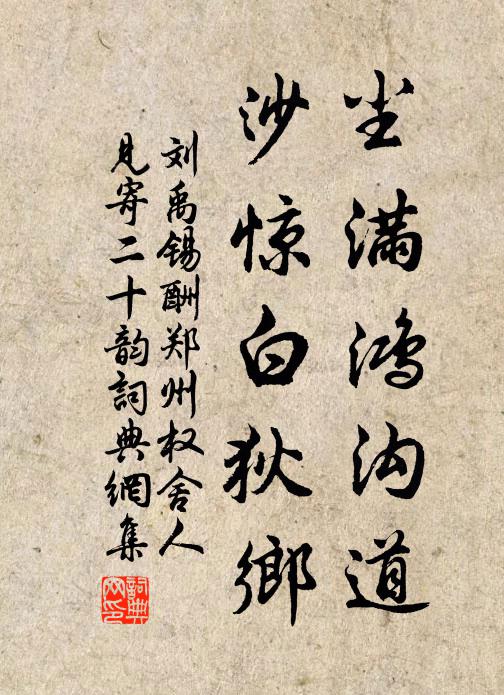 尘满鸿沟道
沙惊白狄鄉
刘禹锡酬郑州权舍人
见寄二十韵詞典網集
詞典
网印